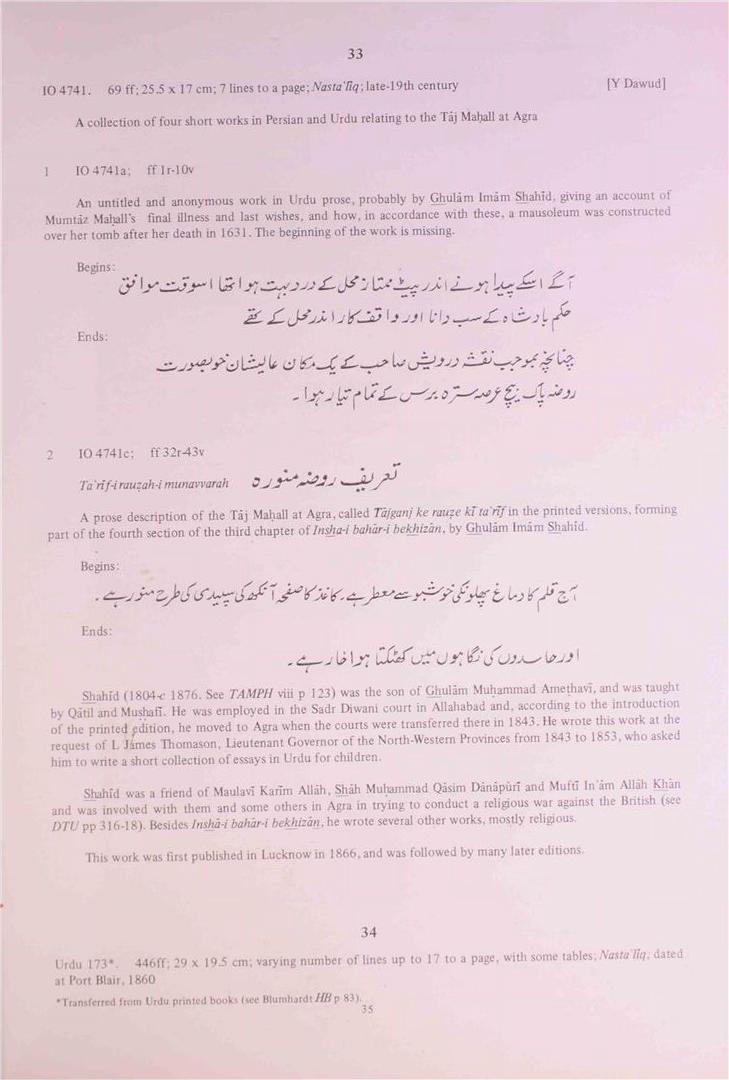 33
IO 4741. 69 ff; 25.5 x 17 cm; 7 lines to a page; Nasta'līq; late-19th century [Y Dawud]
A collection of four short works in Persian and Urdu relating to the Tāj Maḥall at Agra
1 IO 4741a; ff 1r-10v
An untitled and anonymous work in Urdu prose, probably by Ghulām Imām Shahīd, giving an account of
Mumtāz Maḥall's final illness and last wishes, and how, in accordance with these, a mausoleum was constructed
over her tomb after her death in 1631. The beginning of the work is missing.
Begins:
آگے اسکے پیدا ہونے اندر پیٹ ممتاز محل کے درد بہت ہوا تھا اسوقت موافق
حکم بادشاہ کے سب دانا اور واقف کار اندر محل کے تھے
Ends:
چنانچہ بموجب نقشہ درویش صاحب کے یک مکان عالیشان خوبصورت
روضہ پاک بیچ عرصہ سترہ برس کے تمام تیار ہوا ۔
2 IO 4741c; ff 32r-43v
Ta'rīf-i rauẓah-i munavvarah تعریف روضہ منورہ
A prose description of the Tāj Maḥall at Agra, called Tājganj ke rauẓe kī ta'rīf in the printed versions, forming
part of the fourth section of the third chapter of Insha-i bahār-i bekhizān, by Ghulām Imām Shahīd.
Begins:
آج قلم کا دماغ پھلونکی خوشبو سے معطر ہے ۔ کاغذ کا صفحہ آنکھ کی سپیدی کی طرح منور ہے ۔
Ends:
اور حاسدوں کی نگاہوں میں کھٹکتا ہوا خار ہے ۔
Shahīd (1804-c 1876. See TAMPH viii p 123) was the son of Ghulām Muḥammad Ameṭhavī, and was taught
by Qātil and Muṣḥafī. He was employed in the Sadr Diwani court in Allahabad and, according to the introduction
of the printed edition, he moved to Agra when the courts were transferred there in 1843. He wrote this work at the
request of L James Thomason, Lieutenant Governor of the North-Western Provinces from 1843 to 1853, who asked
him to write a short collection of essays in Urdu for children.
Shahīd was a friend of Maulavī Karīm Allāh, Shāh Muḥammad Qāsim Dānāpūrī and Muftī In'ām Allāh Khān
and was involved with them and some others in Agra in trying to conduct a religious war against the British (see
DTU pp 316-18). Besides Inshā-i bahār-i bekhizān, he wrote several other works, mostly religious.
This work was first published in Lucknow in 1866, and was followed by many later editions.
34
Urdu 173*. 446ff; 29 x 19.5 cm; varying number of lines up to 17 to a page, with some tables; Nasta'līq; dated
at Port Blair, 1860
*Transferred from Urdu printed books (see Blumhardt HB p 83).
35